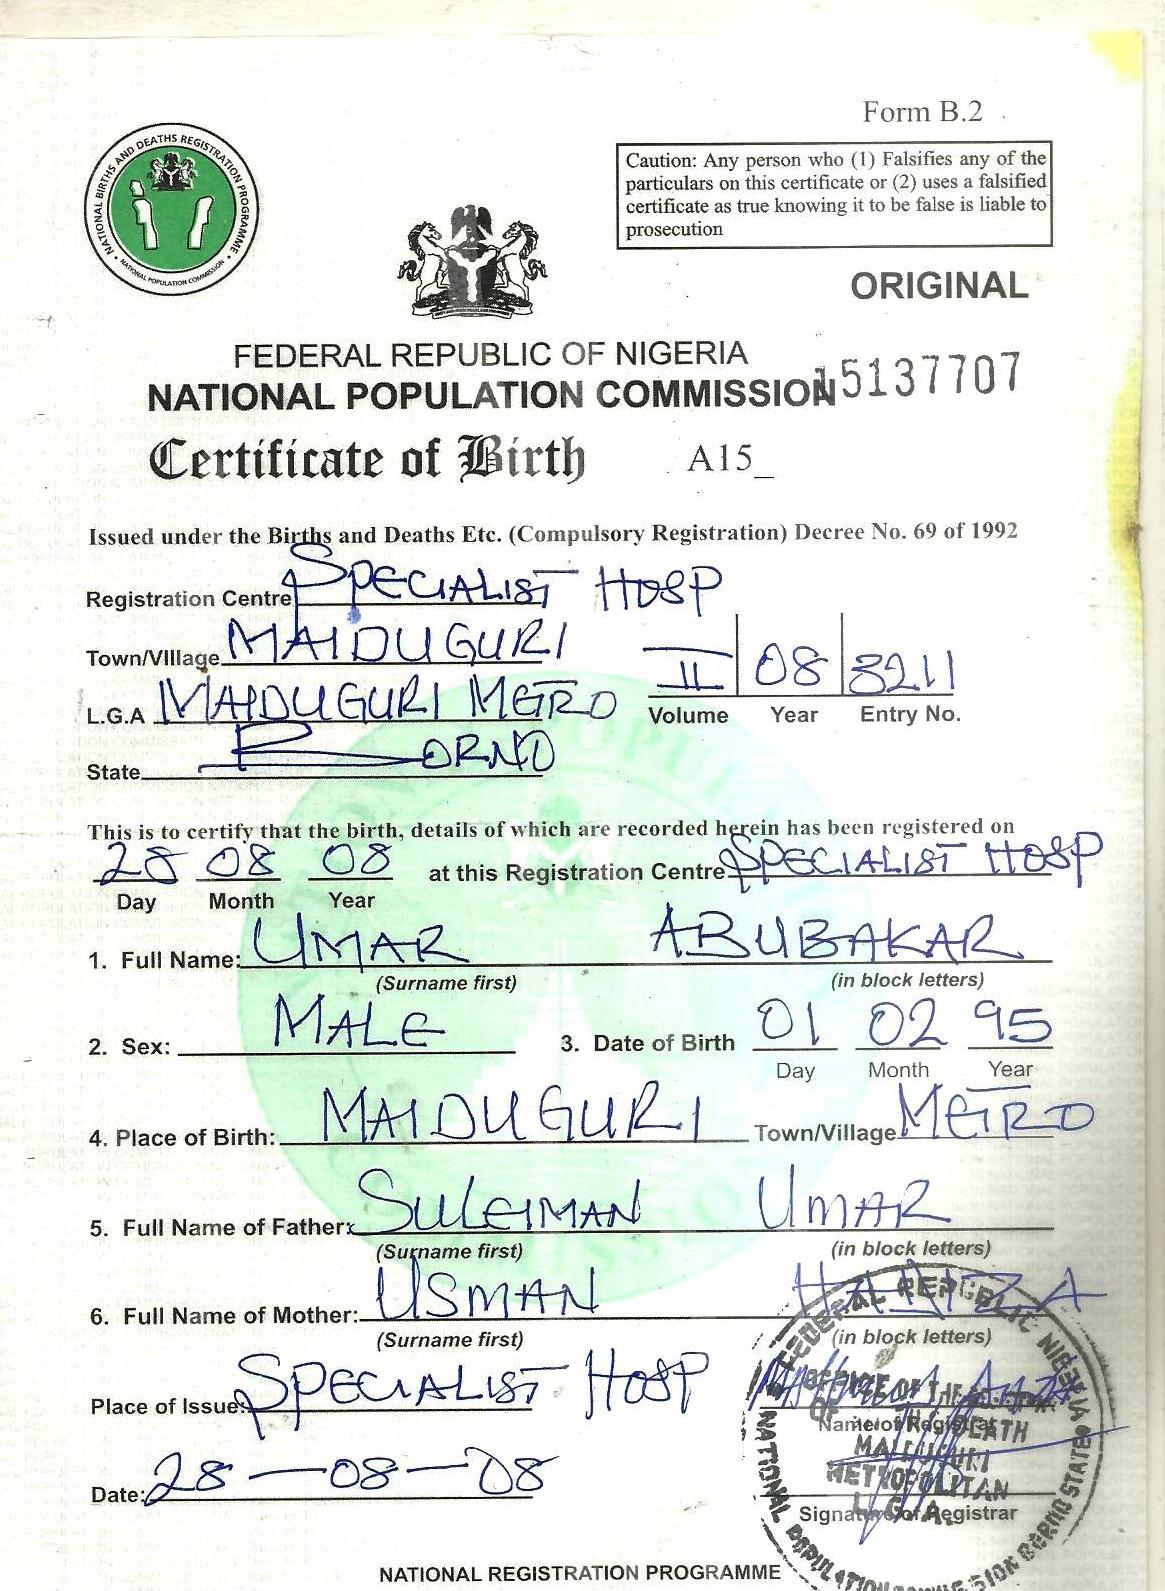 Form B.2
NATIONAL BIRTHS AND DEATHS REGISTRATION PROGRAMME
NATIONAL POPULATION COMMISSION
Caution: Any person who (1) Falsifies any of the
particulars on this certificate or (2) uses a falsified
certificate as true knowing it to be false is liable to
prosecution
ORIGINAL
FEDERAL REPUBLIC OF NIGERIA
NATIONAL POPULATION COMMISSION 15137707
Certificate of Birth A15_
Issued under the Births and Deaths Etc. (Compulsory Registration) Decree No. 69 of 1992
Registration Centre SPECIALIST HOSP
Town/Village MAIDUGURI
L.G.A MAIDUGURI METRO
II 08 3211
Volume Year Entry No.
State BORNO
This is to certify that the birth, details of which are recorded herein has been registered on
28 08 08 at this Registration Centre SPECIALIST HOSP
Day Month Year
1. Full Name: UMAR ABUBAKAR
(Surname first) (in block letters)
2. Sex: MALE 3. Date of Birth 01 02 95
Day Month Year
4. Place of Birth: MAIDUGURI Town/Village METRO
5. Full Name of Father: SULEIMAN UMAR
(Surname first) (in block letters)
6. Full Name of Mother: USMAN
(Surname first) (in block letters)
Place of Issue: SPECIALIST HOSP
Name of Registrar
Date: 28-08-08
Signature of Registrar
FEDERAL REPUBLIC NIGERIA
OFFICE OF THE
DEATH
MAIDUGURI
METROPOLITAN
L.G.A.
NATIONAL POPULATION COMMISSION BORNO STATE
NATIONAL REGISTRATION PROGRAMME